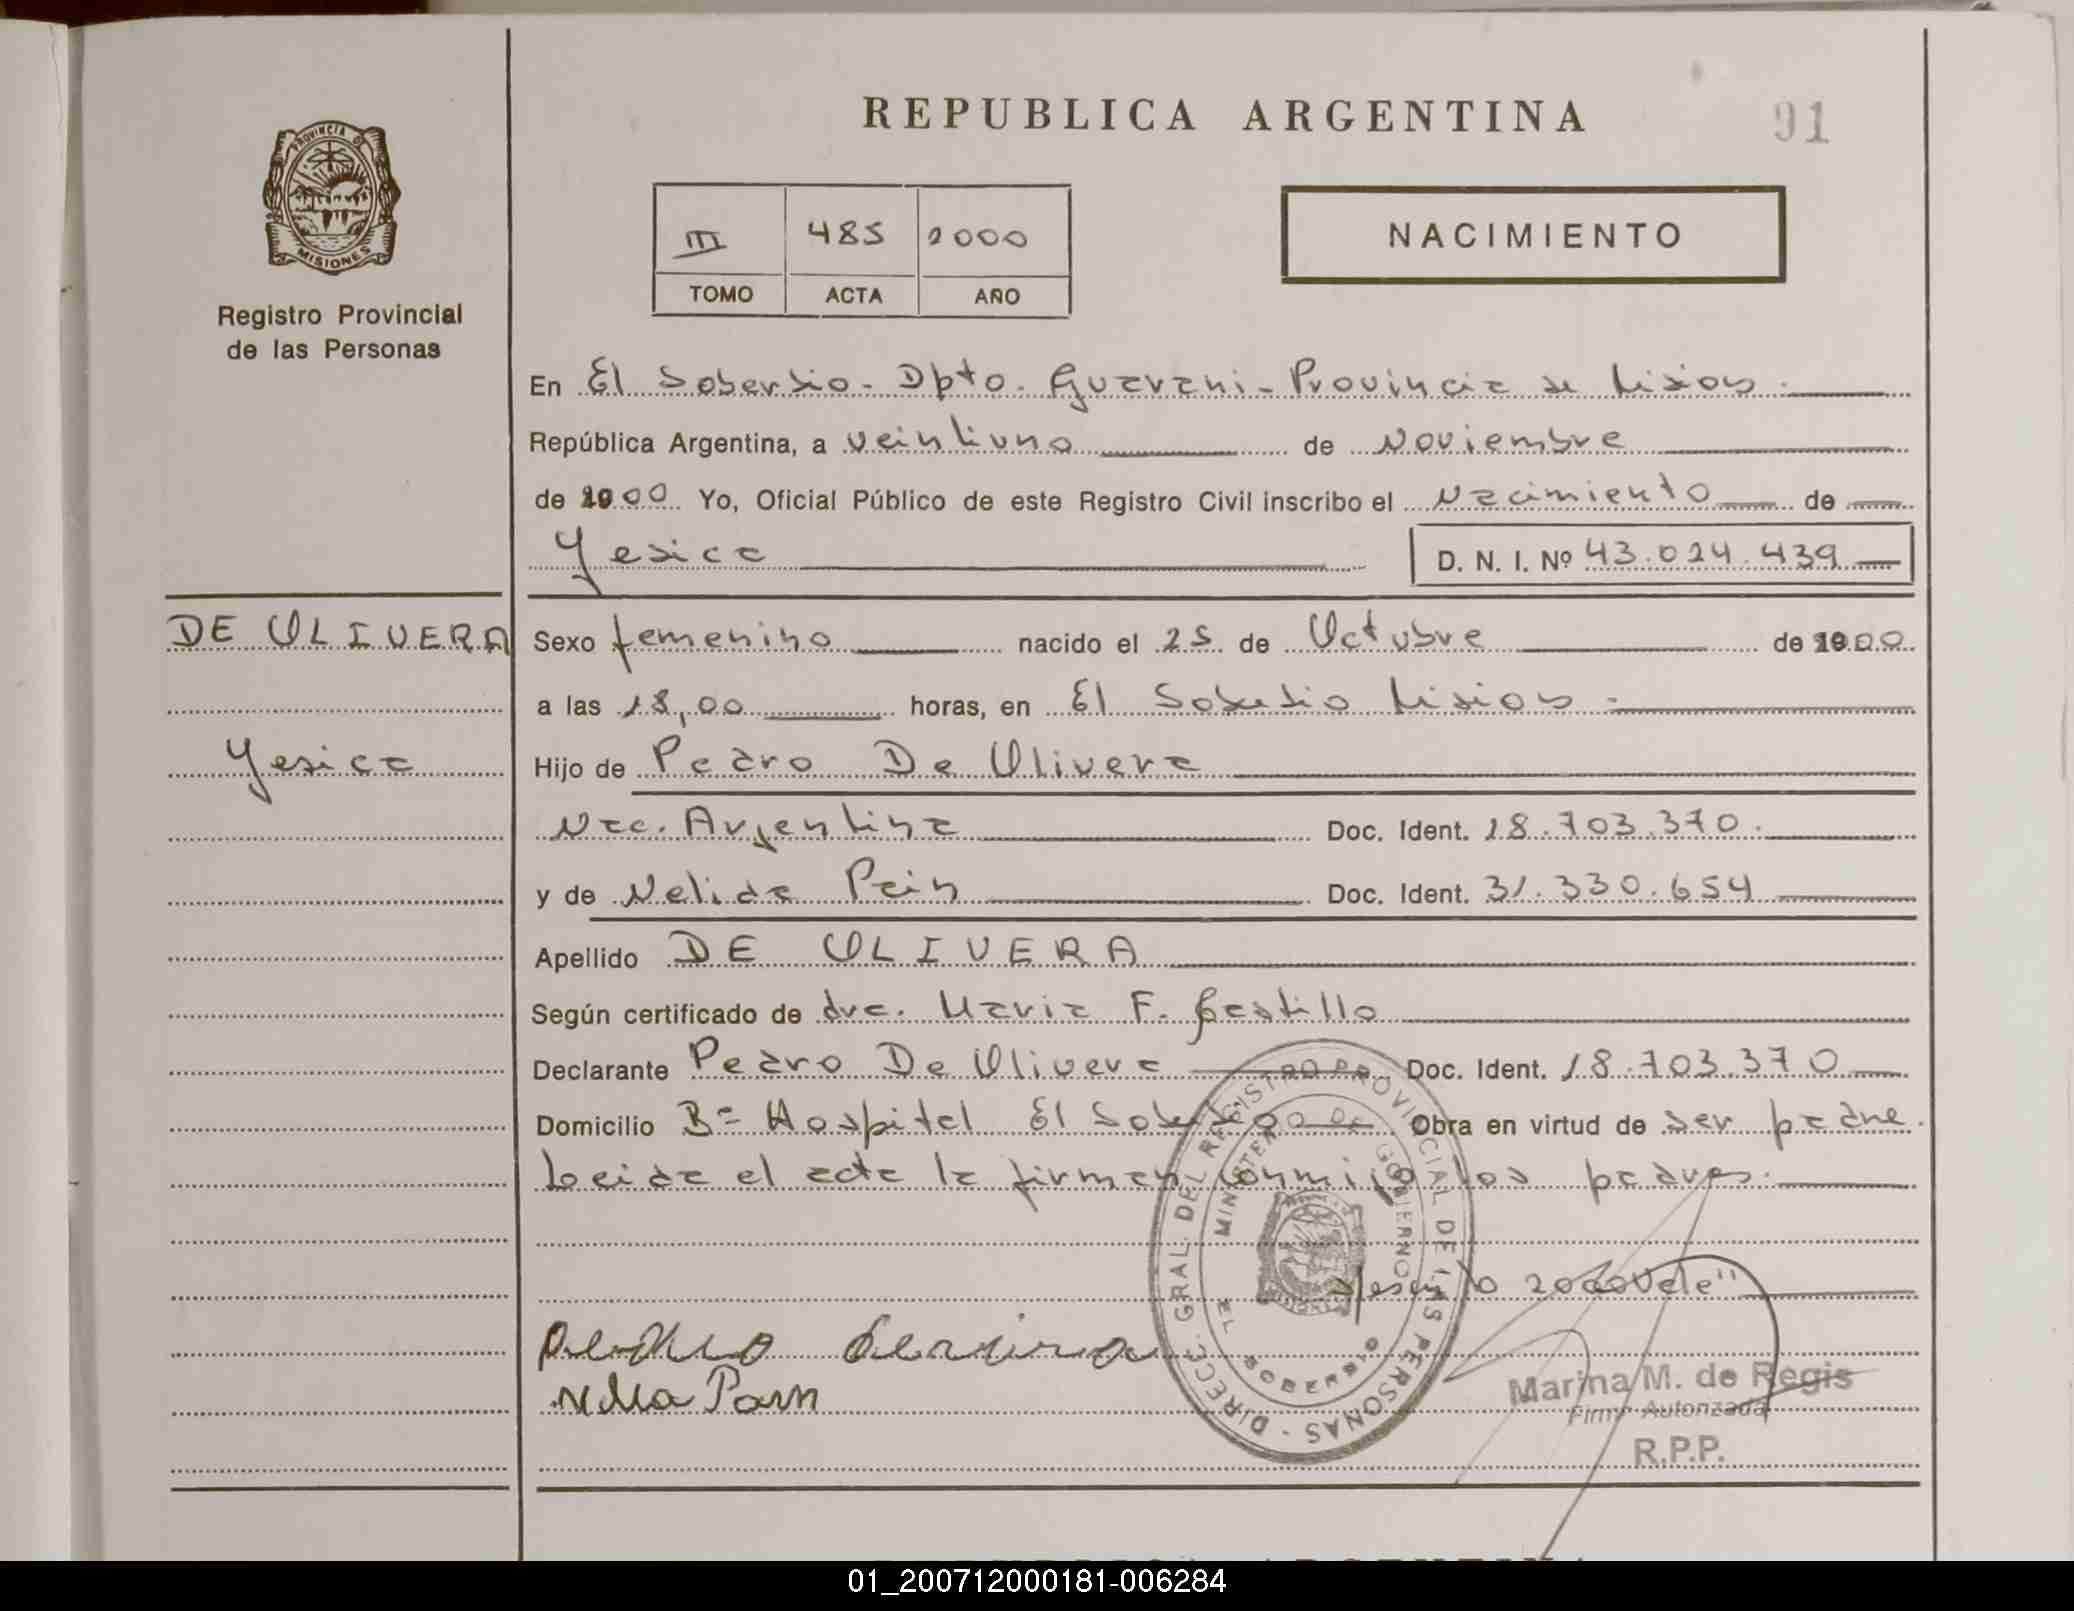 REPUBLICA ARGENTINA
91
PROVINCIA DE
MISIONES
Registro Provincial
de las Personas
III 485 2000
TOMO ACTA AÑO
NACIMIENTO
En El Soberbio - Dpto. Guarani - Provincia de Misiones.
República Argentina, a veintiuno de Noviembre
de 2000 Yo, Oficial Público de este Registro Civil inscribo el Nacimiento de
Yesica D. N. I. Nº 43.024.439
DE OLIVERA
Yesica
Sexo femenino nacido el 25 de Octubre de 2000
a las 18,00 horas, en El Soberbio Misiones.
Hijo de Pedro De Olivera
Nac. Argentina Doc. Ident. 18.703.370.
y de Nelida Pain Doc. Ident. 31.330.654
Apellido DE OLIVERA
Según certificado de dra. Maria F. Castillo
Declarante Pedro De Olivera Doc. Ident. 18.703.370
Domicilio Bº Hospital El Soberbio Obra en virtud de ser padre.
Leida el acta la firman conmigo los padres.
2000 Vale"
DIREC. GRAL. DEL REGISTRO PROVINCIAL DE LAS PERSONAS -
MINISTERIO DE GOBIERNO
EL SOBERBIO
Marina M. de Regis
Firma Autorizada
R.P.P.
01_200712000181-006284